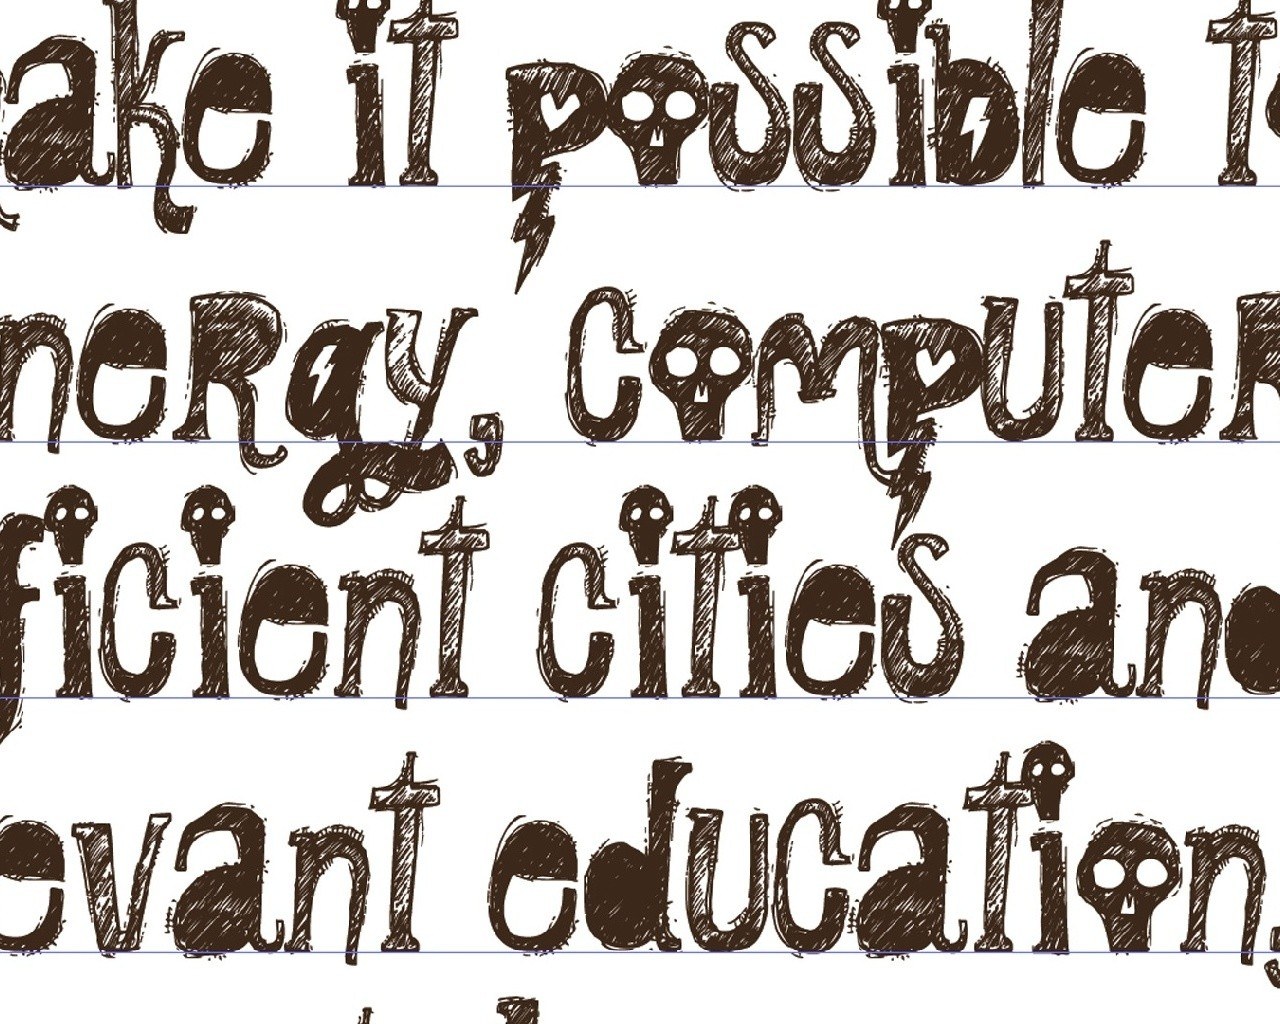 ake it possible to
nergy, computer
ficient cities and
evant education,